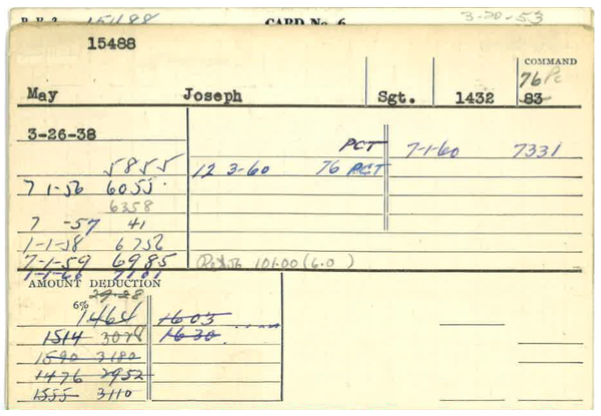 15488 CARD No. 6 3-20-53
15488
COMMAND
76 Pc
May Joseph Sgt. 1432 83
3-26-38
PCT 7-1-60 7331
5855 12 3-60 76 PCT
7 1-56 6055
6358
7 -57 41
1-1-58 6756
7-1-59 6985 101.00 (6.0)
AMOUNT DEDUCTION
29.28
6%
1464 1603
1514 3028 1630
1590 3180
1476 2952
1555 3110